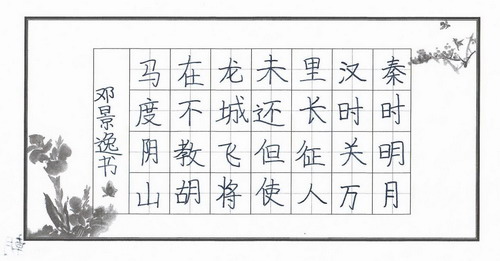 秦时明月
汉时关万
里长征人
未还但使
龙城飞将
在不教胡
马度阴山
邓景逸书